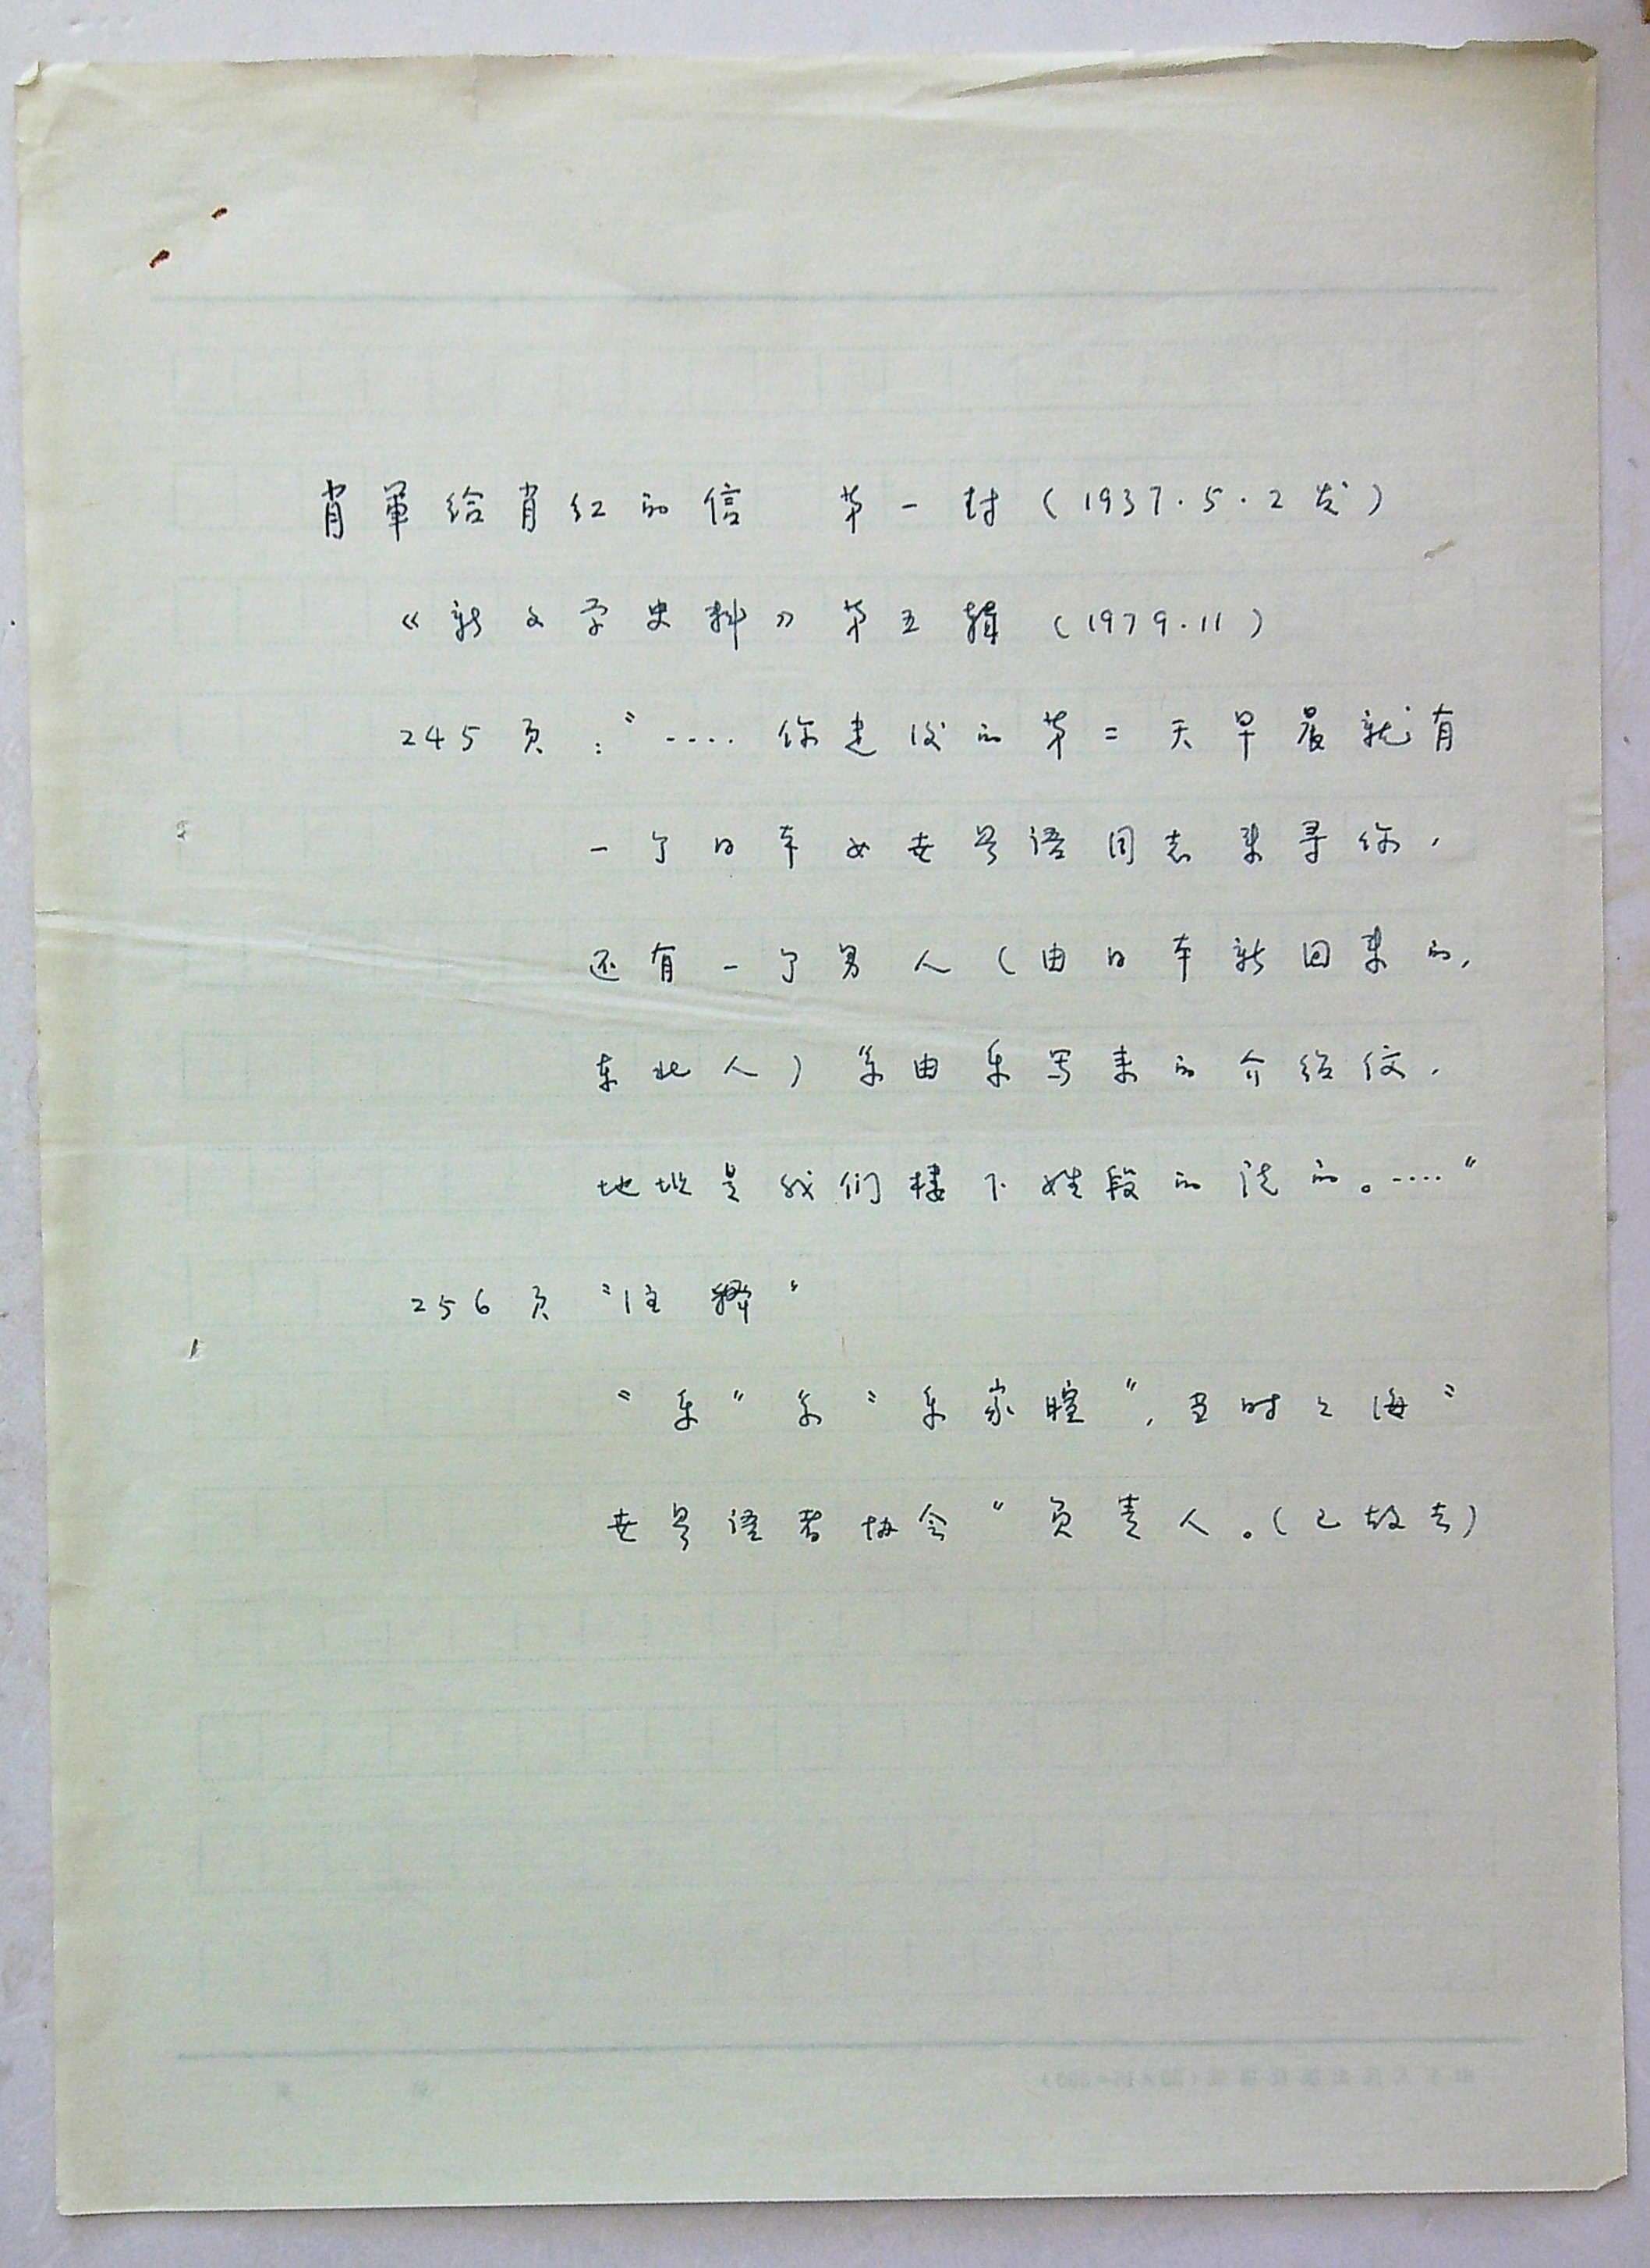 肖軍给肖红的信 第一封(1937.5.2发)
《新文学史料》第五辑(1979.11)
245页:"····你走後的第二天早晨就有
一个日本女世界语同志来寻你,
还有一个男人(由日本新回来的,
东北人)系由乐写来的介绍信.
地址是我们楼下姓段的说的。····"
256页"注释"
"乐"系"乐家暄",当时上海"
世界语者协会"负责人。(已故去)